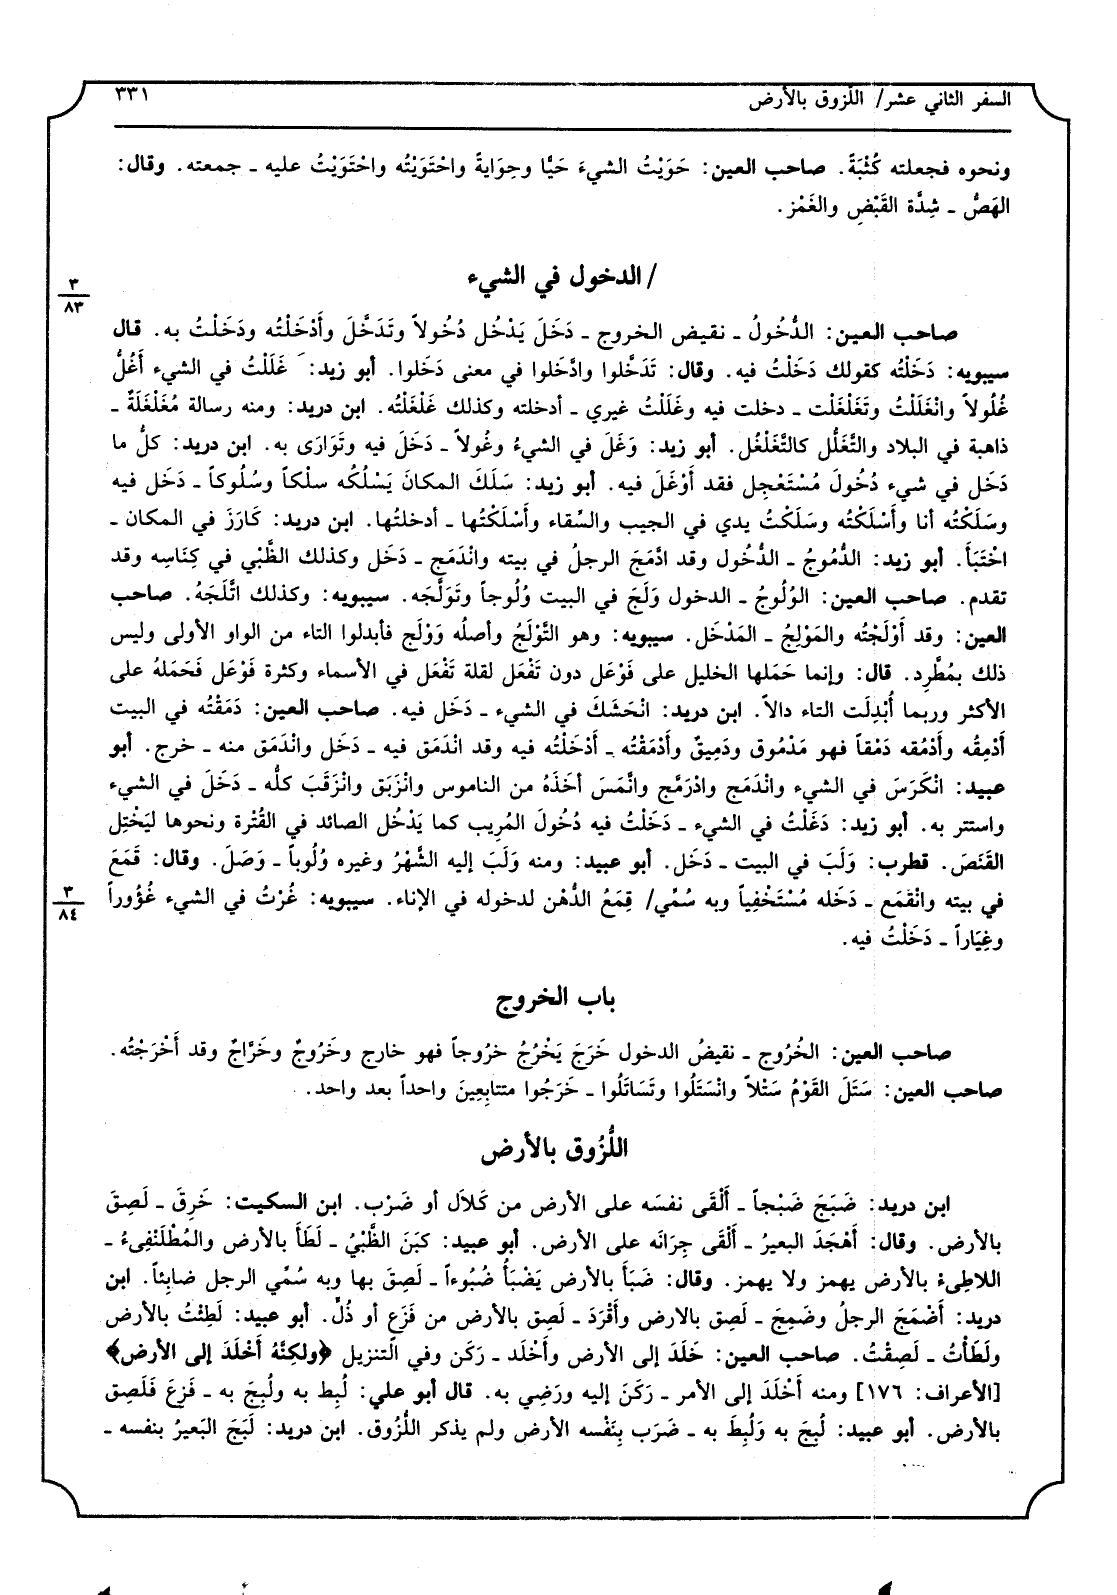 السفر الثاني عشر/ اللّزوق بالأرض ٣٣١
ونحوه فجعلته كُثْبَةً. صاحب العين: حَوَيْتُ الشيءَ حَيًّا وحِوَايةً واحْتَوَيْتُه واحْتَوَيْتُ عليه ـ جمعته. وقال:
الهَصُّ ـ شِدَّة القَبْضِ والغَمْز.
/ الدخول في الشيء
٣
٨٣
صاحب العين: الدُّخُولُ ـ نقيض الخروج ـ دَخَلَ يَدْخُل دُخُولاً وتَدَخَّلَ وأَدْخَلْتُه ودَخَلْتُ به. قال
سيبويه: دَخَلْتُه كقولك دَخَلْتُ فيه. وقال: تَدَخَّلوا وادَّخَلوا في معنى دَخَلوا. أبو زيد: غَلَلْتُ في الشيء أَغُلُّ
غُلُولاً وانْغَلَلْتُ وتَغَلْغَلْت ـ دخلت فيه وغَلَلْتُ غيري ـ أدخلته وكذلك غَلْغَلْتُه. ابن دريد: ومنه رسالة مُغَلْغَلَةٌ ـ
ذاهبة في البلاد والتَّغَلُّل كالتَّغَلْغُل. أبو زيد: وَغَلَ في الشيءُ وغُولاً ـ دَخَلَ فيه وتَوَارَى به. ابن دريد: كلُّ ما
دَخَل في شيء دُخُولَ مُسْتَعْجِل فقد أَوْغَلَ فيه. أبو زيد: سَلَكَ المكانَ يَسْلُكُه سلْكاً وسُلُوكاً ـ دَخَل فيه
وسَلَكْتُه أنا وأَسْلَكْتُه وسَلَكْتُ يدي في الجيب والسِّقاء وأَسْلَكْتُها ـ أدخلتُها. ابن دريد: كَارَزَ في المكان ـ
اخْتَبَأَ. أبو زيد: الدُّمُوجُ ـ الدُّخُول وقد ادَّمَجَ الرجلُ في بيته وانْدَمَج ـ دَخَل وكذلك الظَّبْي في كِنَاسِه وقد
تقدم. صاحب العين: الوُلُوجُ ـ الدخول وَلَجَ في البيت وُلُوجاً وتَوَلَّجَه. سيبويه: وكذلك اتَّلَجَهُ. صاحب
العين: وقد أَوْلَجْتُه والمَوْلِجُ ـ المَدْخَل. سيبويه: وهو التَّوْلَجُ وأصلُه وَوْلَج فأبدلوا التاء من الواو الأولى وليس
ذلك بمُطَّرِد. قال: وإنما حَمَلها الخليل على فَوْعَل دون تَفْعَل لقلة تَفْعَل في الأسماء وكثرة فَوْعَل فَحَملهُ على
الأكثر وربما أُبْدِلَت التاء دالاً. ابن دريد: انْحَشَكَ في الشيء ـ دَخَل فيه. صاحب العين: دَمَقْتُه في البيت
أَدْمِقُه وأَدْمُقه دَمْقاً فهو مَدْمُوق ودَمِيقٌ وأَدْمَقْتُه ـ أَدْخَلْتُه فيه وقد انْدَمَق فيه ـ دَخَل وانْدَمَق منه ـ خرج. أبو
عبيد: انْكَرَسَ في الشيء وانْدَمَج وادْرَمَّج وانَّمَسَ أخَذَهُ من الناموس وانْزَبَق وانْزَقَبَ كلُّه ـ دَخَلَ في الشيء
واستتر به. أبو زيد: دَغَلْتُ في الشيء ـ دَخَلْتُ فيه دُخُولَ المُرِيب كما يَدْخُل الصائد في القُتْرة ونحوها ليَخْتِل
القَنَصَ. قطرب: وَلَبَ في البيت ـ دَخَل. أبو عبيد: ومنه وَلَبَ إليه الشَّهْرُ وغيره وُلُوباً ـ وَصَلَ. وقال: قَمَعَ
في بيته وانْقَمَع ـ دَخَله مُسْتَخْفِياً وبه سُمِّي/ قِمَعُ الدُّهْن لدخوله في الإناء. سيبويه: غُرْتُ في الشيء غُؤُوراً
٣
٨٤
وغِيَاراً ـ دَخَلْتُ فيه.
باب الخروج
صاحب العين: الخُرُوج ـ نقيضُ الدخول خَرَجَ يَخْرُجُ خرُوجاً فهو خارج وخَرُوجٌ وخَرَّاجٌ وقد أَخْرَجْتُه.
صاحب العين: سَتَلَ القَوْمُ سَتْلاً وانْسَتَلُوا وتَسَاتَلُوا ـ خَرَجُوا متتابِعِينَ واحداً بعد واحد.
اللُّزُوق بالأرض
ابن دريد: ضَبَجَ ضَبْجاً ـ أَلْقَى نفسَه على الأرض من كَلاَل أو ضَرْب. ابن السكيت: خَرِقَ ـ لَصِقَ
بالأرض. وقال: أَهْجَدَ البعيرُ ـ أَلْقَى جِرَانَه على الأرض. أبو عبيد: كبَنَ الظَّبْيُ ـ لَطَأَ بالأرض والمُطْلَنْفِىءُ ـ
اللاطِىءُ بالأرض يهمز ولا يهمز. وقال: ضَبَأَ بالأرض يَضْبَأُ ضُبُوءاً ـ لَصِقَ بها وبه سُمِّي الرجل ضابِئاً. ابن
دريد: أَضْمَجَ الرجلُ وضَمِجَ ـ لَصِق بالارض وأَقْرَدَ ـ لَصِق بالأرض من فَزَع أو ذُلّ. أبو عبيد: لَطِئْتُ بالأرض
ولَطَأْتُ ـ لَصِقْتُ. صاحب العين: خَلَدَ إلى الأرض وأَخْلَد ـ رَكَن وفي التنزيل ﴿ولكِنَّهُ أَخْلَدَ إلى الأرض﴾
[الأعراف: ١٧٦] ومنه أَخْلَدَ إلى الأمر ـ رَكَنَ إليه ورَضِي به. قال أبو علي: لُبِط به ولُبِجَ به ـ فَزِعَ فَلَصِق
بالأرض. أبو عبيد: لُبِجَ به وَلُبِطَ به ـ ضَرَب بِنَفْسه الأرض ولم يذكر اللُّزُوق. ابن دريد: لَبَجَ البَعيرُ بنفسه ـ